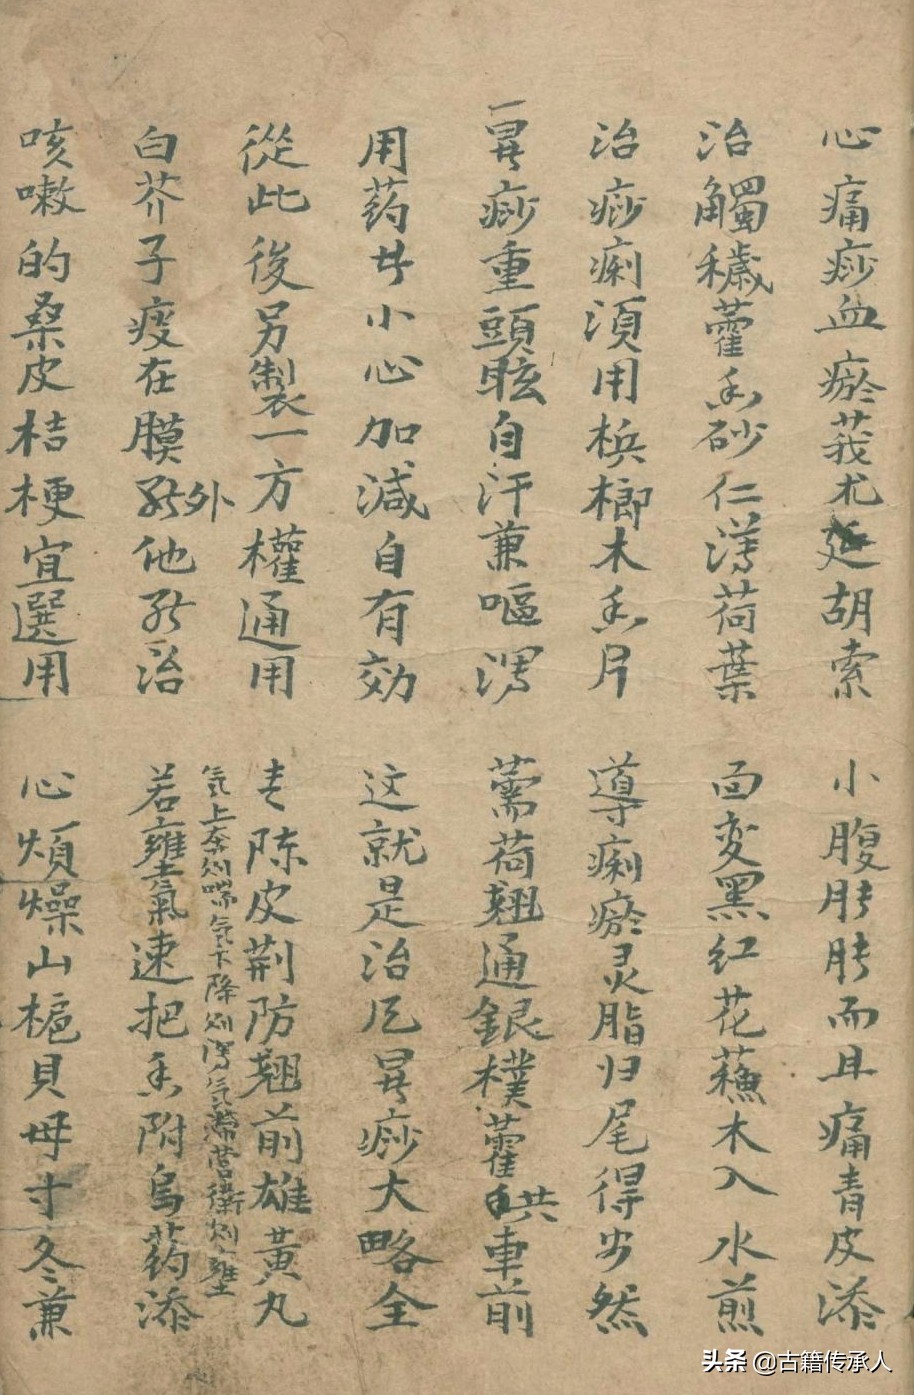 心痛痧血瘀莪朮延胡索　小腹胀胀而且痛青皮添
治觸穢藿香砂仁薄荷葉　面变黑红花蘓木入水煎
治痧痢須用梹榔木香片　導痢瘀灵脂归尾得安然
一暑痧重頭眩自汗兼嘔瀉　薷荷翹通銀樸藿香共車前
用药小心加減自有効　这就是治暑痧大略全
從此後另製一方權通用　陈皮荆防翘前雄黃丸
气上奔则喘气下降则瀉气滞营衛则壅
白芥子痰在膜外能他能治　若壅氣速把香附烏药添
咳嗽的桑皮桔梗宜選用　心煩燥山梔貝母寸冬兼
头条 @古籍传承人